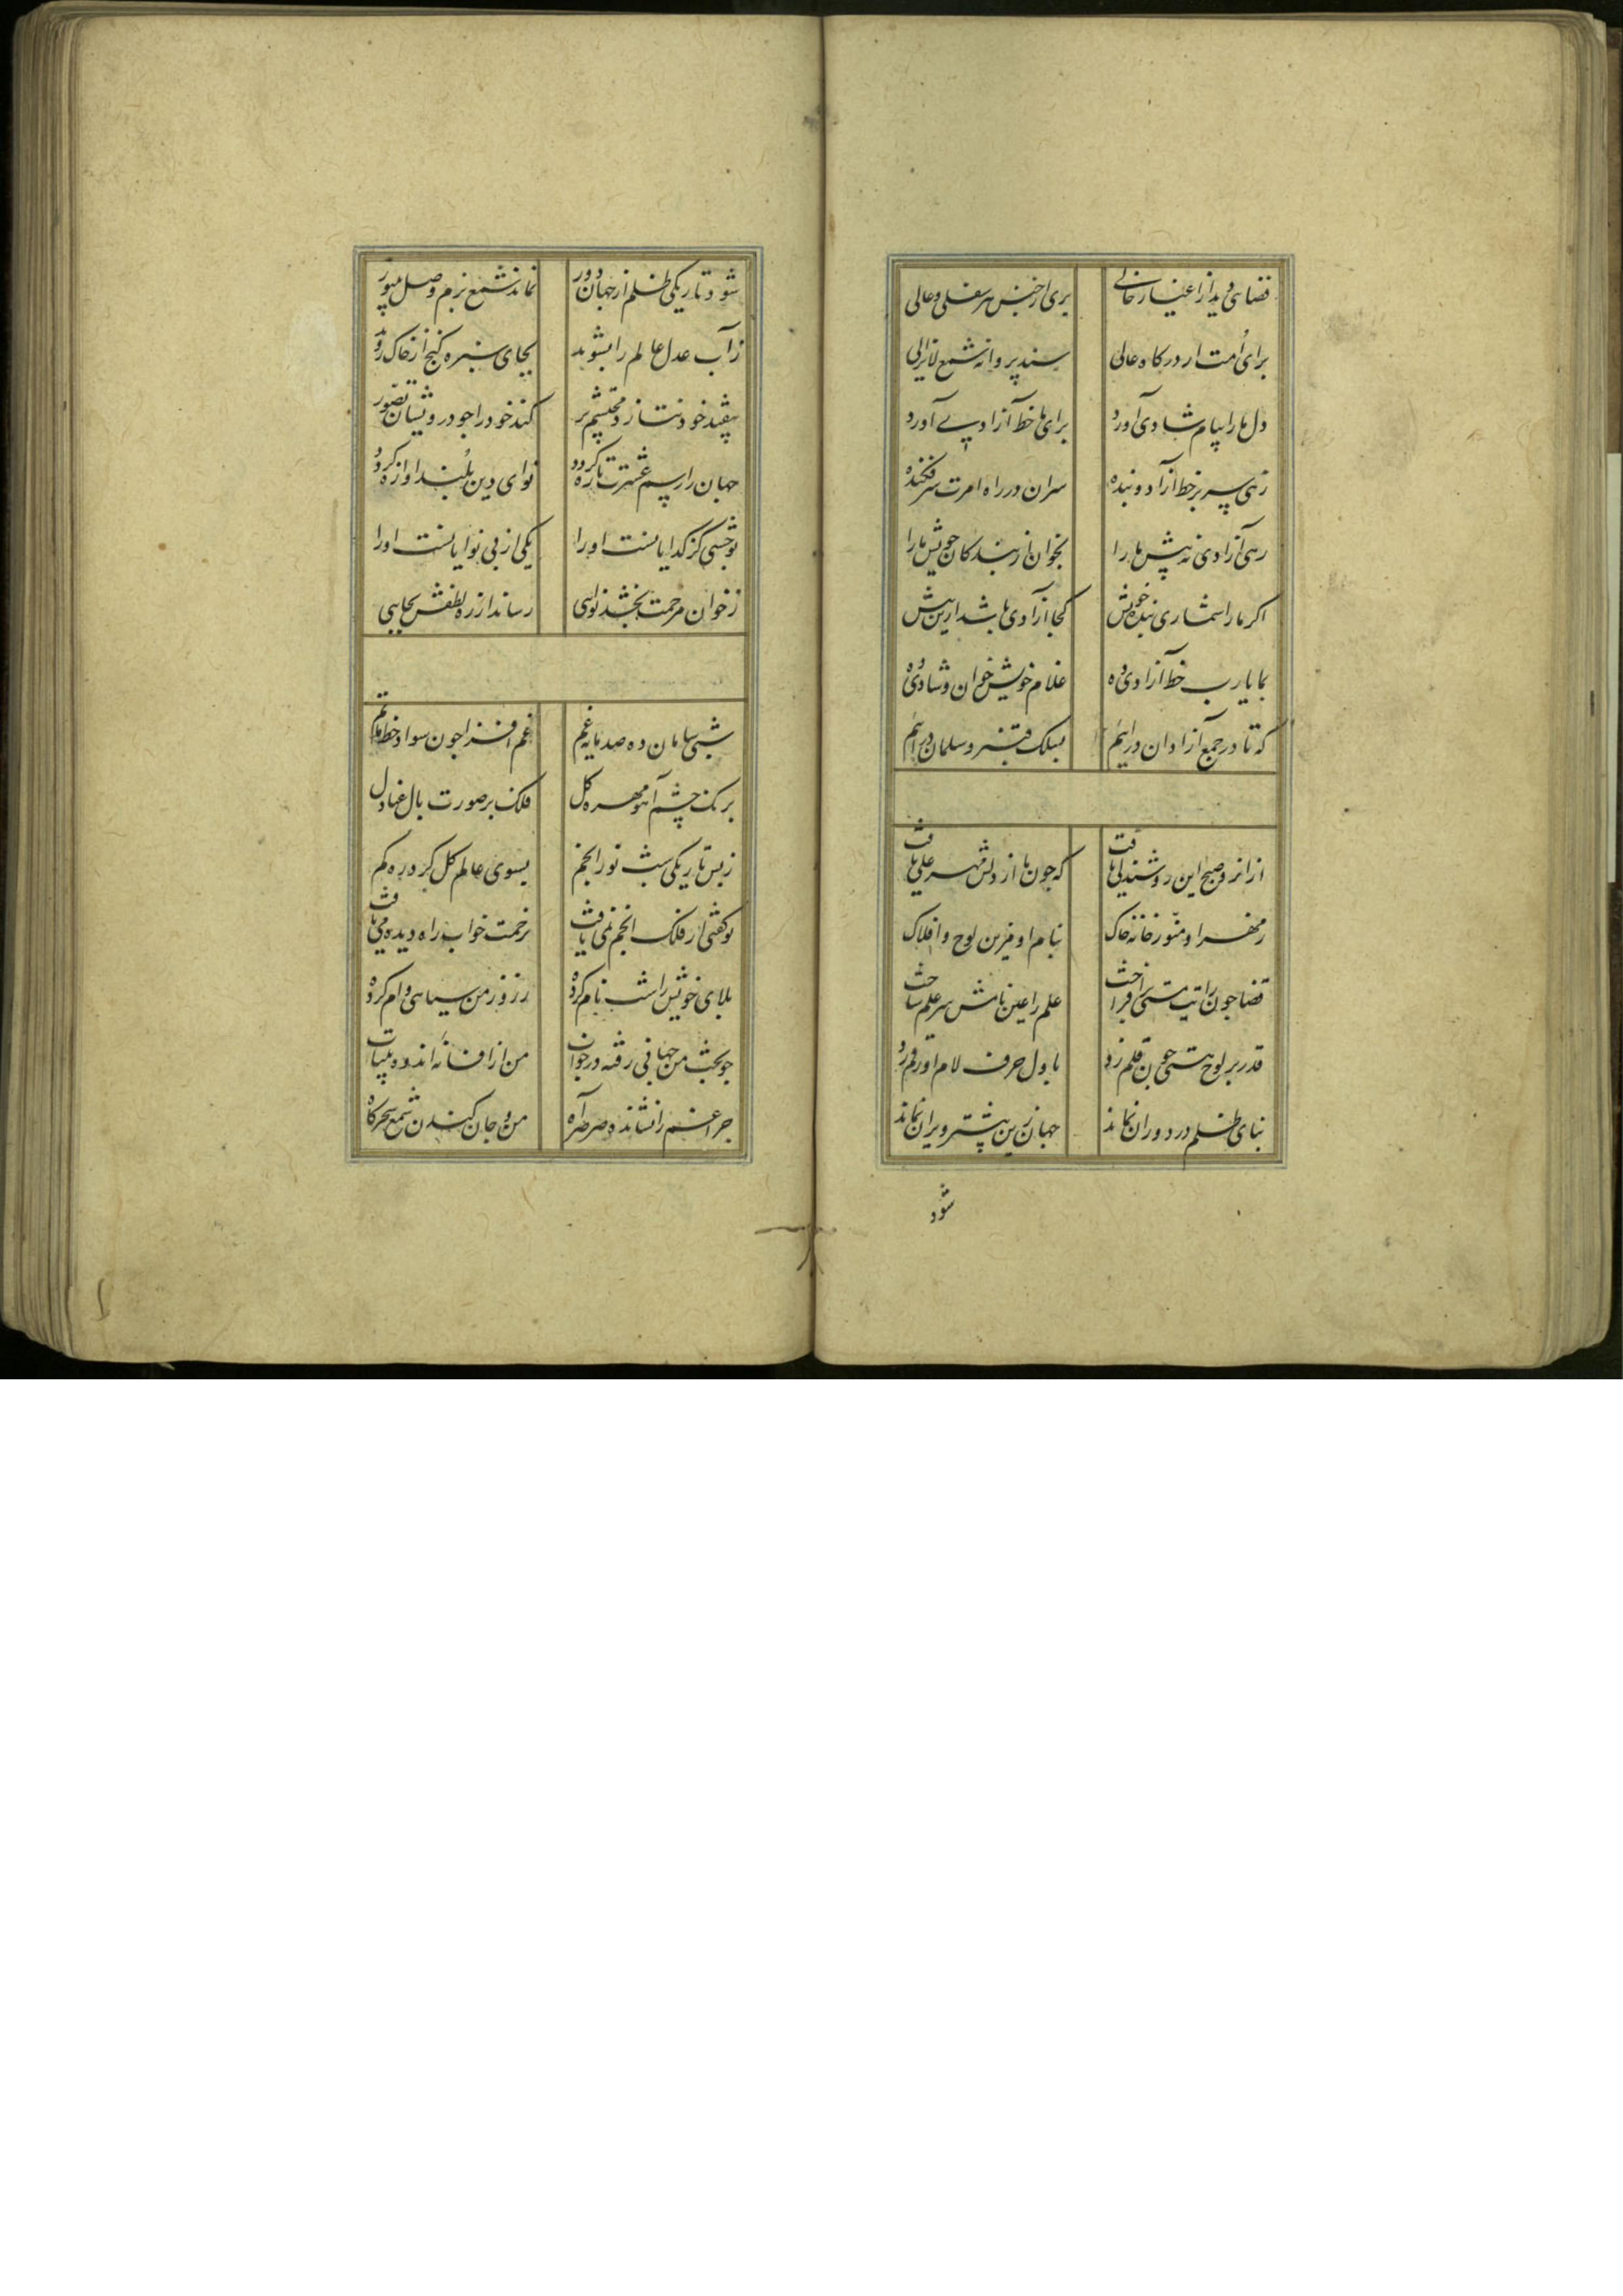 فضای دید از اغیار خالی بری از جنس هر سفلی و عالی
برای امت از درکاه عالی ستد پروانه شمع لایزالی
دل ما را پیام شادی آورد برای ما خط آزادیی آورد
زهی سر بر خط آزاد و بنده سران در راه امرت سر فکنده
رهی آزادی نه پیش ما را بخوان از بندکان خویش ما را
اکر ما را شماری بنده خویش کجا آزادی باشد ازین بیش
بما یا رب خط آزادی ده غلام خویش خوان و شادی ده
که تا در جمع آزادان درایم بسلک قنبر و سلمان درایم
از انرو صبح این روشندلی یافت که چون ما از دلش مهر علی یافت
ز مهر او منور خانه خاک بنام او مزین لوح و افلاک
قضا چون رایت هستی برافراخت علم را عین نامش سر علم ساخت
قدر بر لوح هستی چون قلم زد باول حرف لام او رقم زد
بنای ظلم در دوران نماند جهان زین بیشتر ویران نماند
شود
شود تاریکی ظلم از جهان دور نماند شمع بزم وصل بی نور
ز آب عدل عالم را بشوید بجای سبزه کنج از خاک روید
بیفتد خود نتازد محتشم بر کند خود را چو درویشان تصور
جهان را رسم عشرت تازه کردد نوای دین بلند اوازه کردد
تو حبسی کز کدایانست او را یکی از بی نوایانست او را
ز خوان مرحمت بخشد نوایی رساند از ره لطفش بجایی
شبی سامان ده صد مایه غم غم افزا چون سواد خط ماتم
برنک چشم آهو مهره کل فلک بر صورت بال عنادل
ز بس تاریکی شب نور انجم بسوی عالم کل کرده ره کم
تو کفتی از فلک انجم نمی یافت بزحمت خواب راه دیده می یافت
بلای خویش را شب نام کرده ز روز من سیاهی وام کرده
چو بخت من جهانی رفته در خواب من از افسانه اندوه بیتاب
چراغم را نشانده صرصر آه من و جان کندن شمع سحرکاه